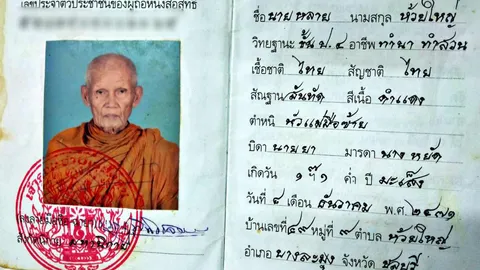 เลขประจำตัวประชาชนของผู้ถือหนังสือสุทธิ
ชื่อ นาย หลาย นามสกุล ห้วยใหญ่
วิทยฐานะ ชั้น ป. ๔ อาชีพ ทำนา ทำสวน
เชื้อชาติ ไทย สัญชาติ ไทย
สัณฐาน สันทัด สีเนื้อ ดำแดง
ตำหนิ หัวแม่มือซ้าย
บิดา นาย ยา มารดา นาง หยัด
เกิดวัน ๑ ฯ ๑ ค่ำ ปี มะเส็ง
วันที่ ๘ เดือน ธันวาคม พ.ศ. ๒๔๗๑
บ้านเลขที่ ๔๙ หมู่ที่ ๙ ตำบล ห้วยใหญ่
อำเภอ บางละมุง จังหวัด ชลบุรี
มหานิกาย